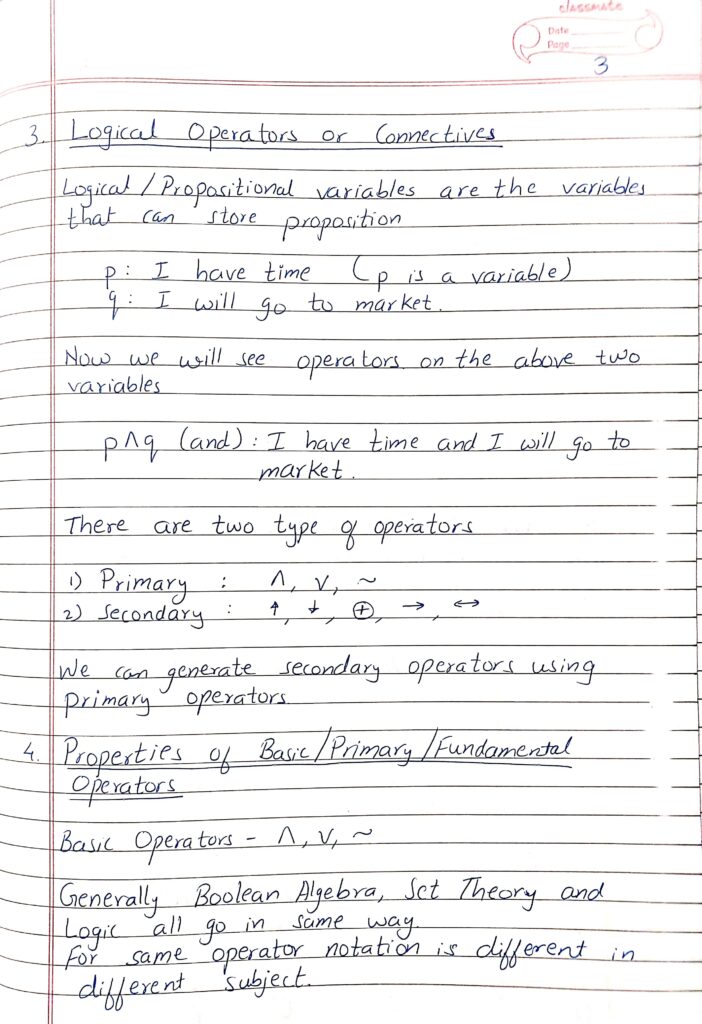 classmate
Date
Page
3
3. Logical Operators or Connectives
Logical / Propositional variables are the variables
that can store proposition
p: I have time (p is a variable)
q: I will go to market.
Now we will see operators on the above two
variables
p∧q (and): I have time and I will go to
market.
There are two type of operators
1) Primary : ∧, ∨, ~
2) Secondary : ↑, ↓, ⊕, →, ↔
We can generate secondary operators using
primary operators
4. Properties of Basic/Primary/Fundamental
Operators
Basic Operators - ∧, ∨, ~
Generally Boolean Algebra, Set Theory and
Logic all go in same way.
For same operator notation is different in
different subject.